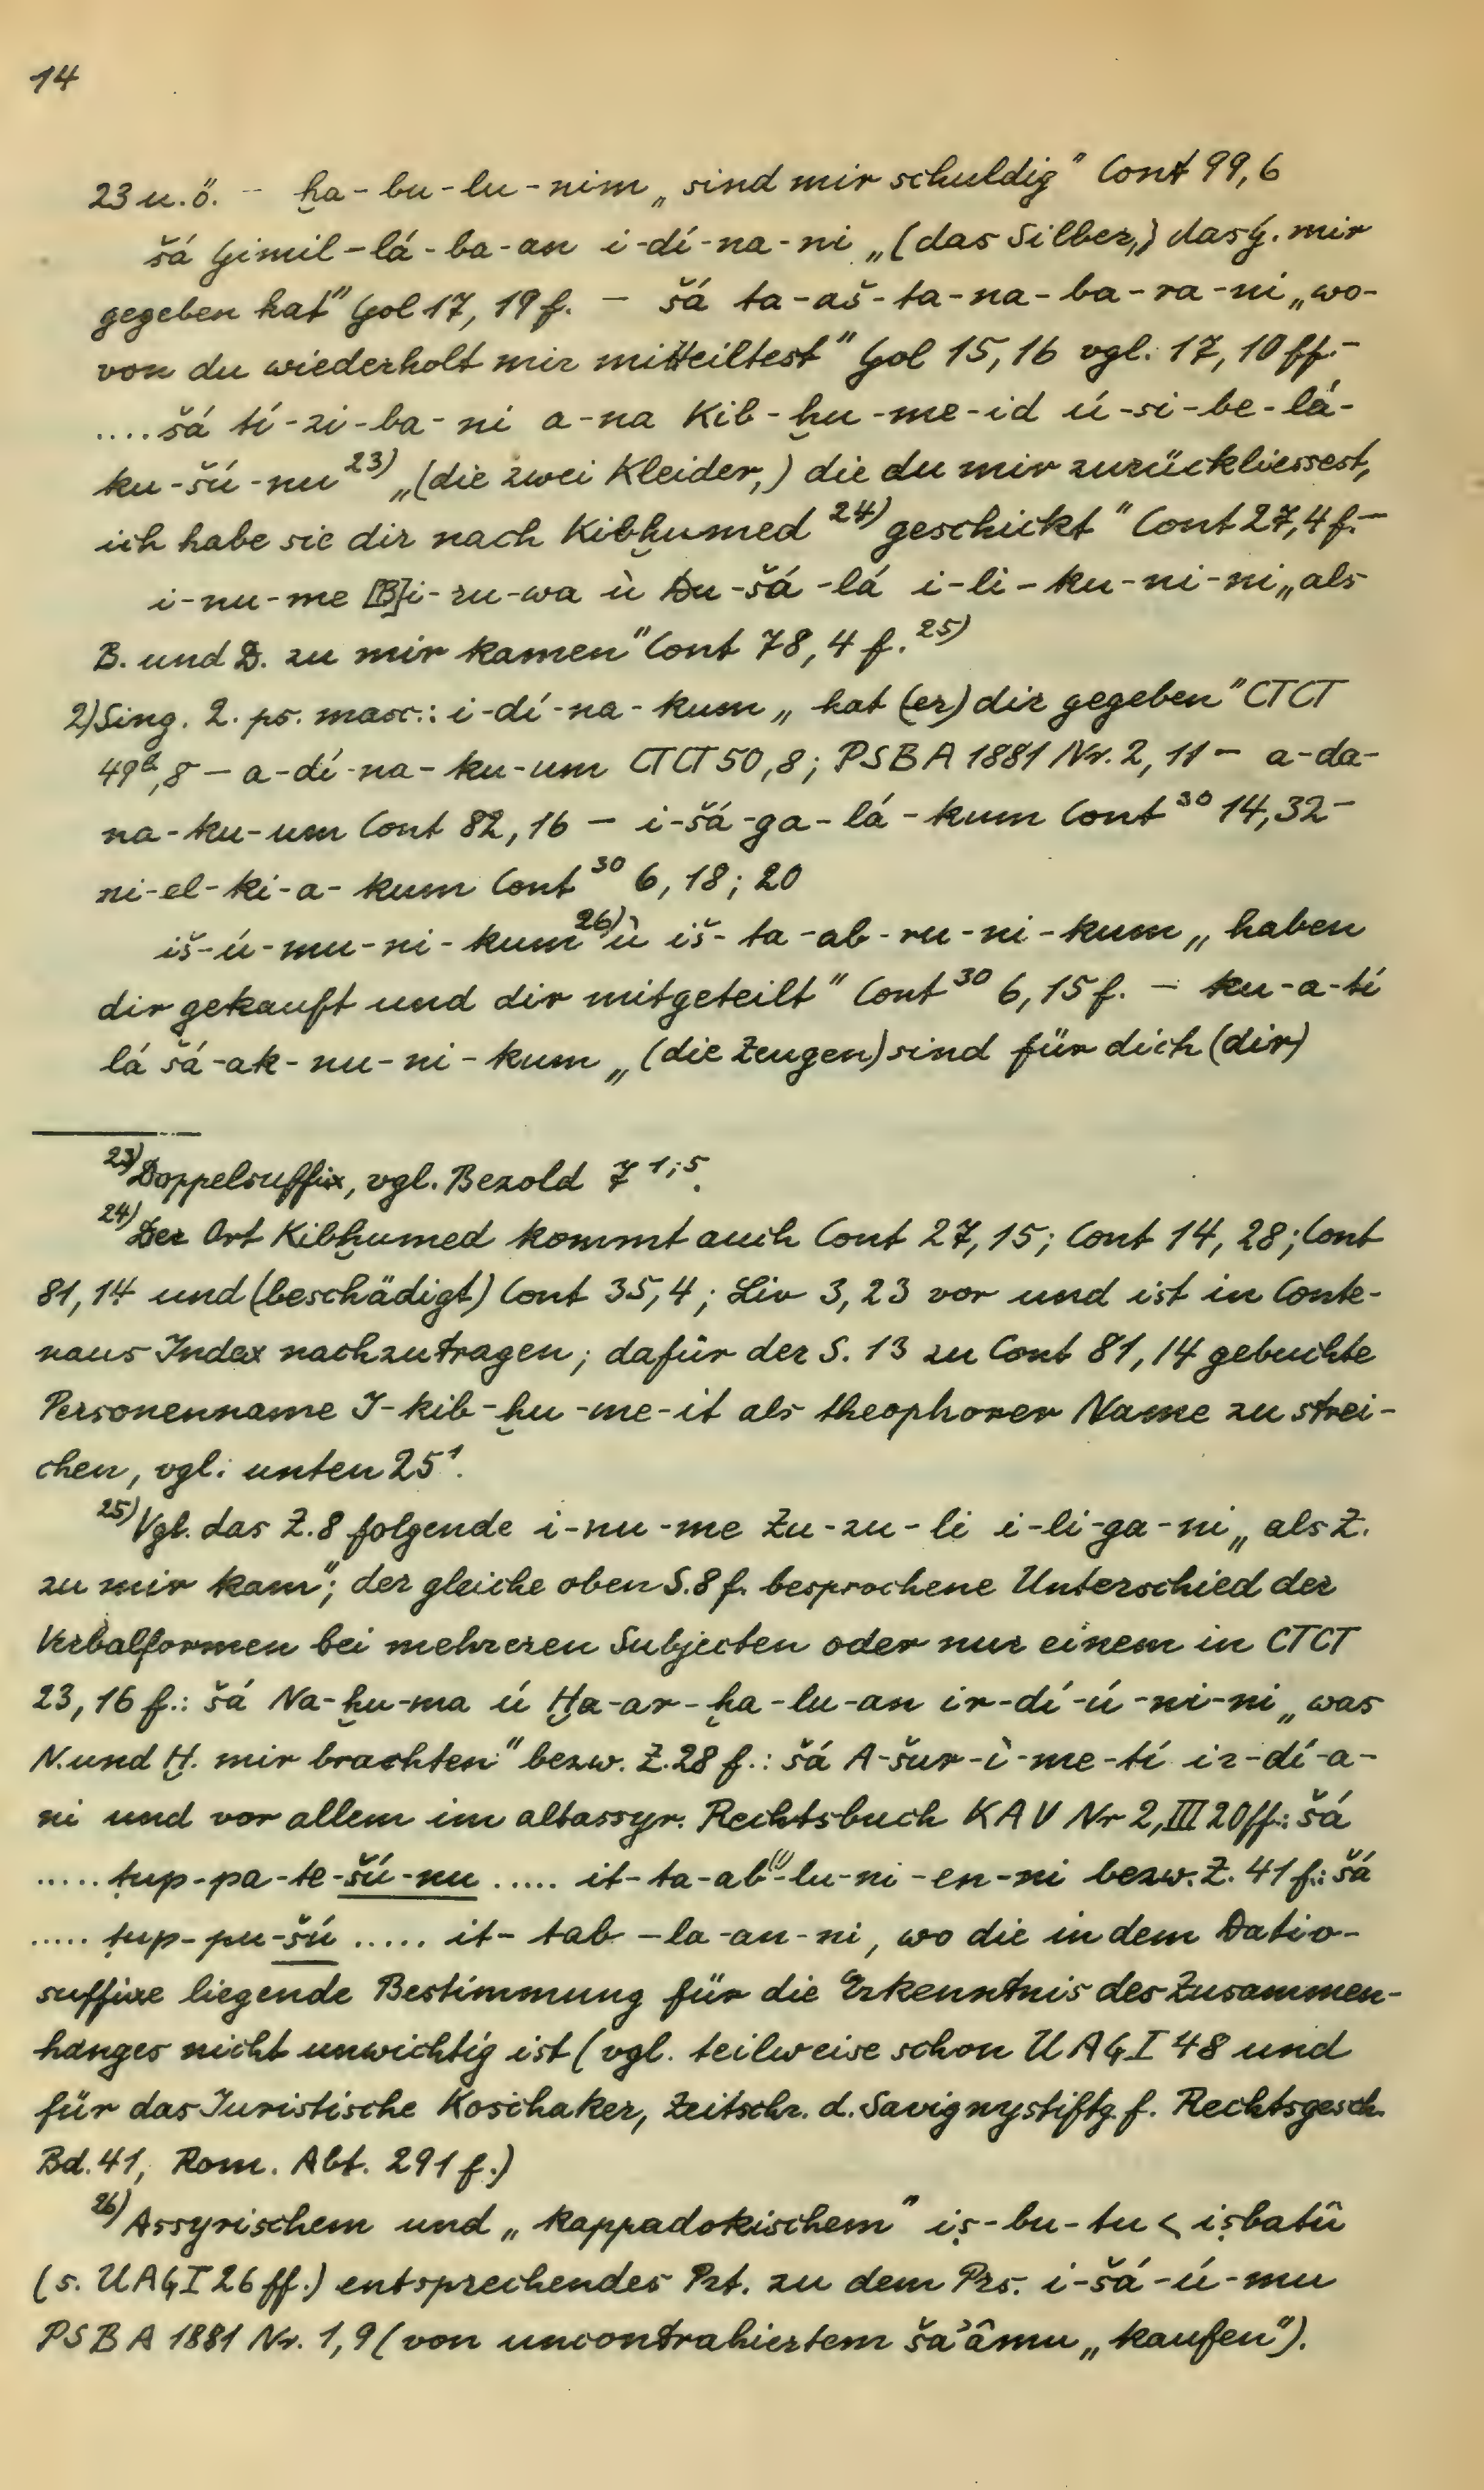 14
23 u. ö. – ḫa-bu-lu-nim „sind mir schuldig" Cont 99,6
šá Gimil-lá-ba-an i-dí-na-ni „(das Silber,) das G. mir
gegeben hat" Gol 17, 19 f. – šá ta-aš-ta-na-ba-ra-ni „wo-
von du wiederholt mir mitteiltest" Gol 15,16 vgl. 17, 10 ff. –
....šá tí-zi-ba-ni a-na Kib-ḫu-me-id ú-si-be-lá-
ku-šú-nu 23) „(die zwei Kleider,) die du mir zurückliessest,
ich habe sie dir nach Kibḫumed 24) geschickt" Cont 27,4 f. –
i-nu-me [B]i-zu-wa ù Du-šá-lá i-li-ku-ni-ni „als
B. und D. zu mir kamen" Cont 78, 4 f. 25)
2) Sing. 2. ps. masc.: i-dí-na-kum „hat (er) dir gegeben" CTCT
49b,8 – a-dí-na-ku-um CTCT 50,8; PSBA 1881 Nr. 2, 11 – a-da-
na-ku-um Cont 82, 16 – i-šá-ga-lá-kum Cont 30 14,32 –
ni-el-ki-a-kum Cont 30 6, 18; 20
iš-ú-mu-ni-kum 26) ù iš-ta-ab-ru-ni-kum „haben
dir gekauft und dir mitgeteilt" Cont 30 6, 15 f. – ku-a-tí
lá šá-ak-nu-ni-kum „(die Zeugen) sind für dich (dir)
23) Doppelsuffix, vgl. Bezold 7 1;5.
24) Der Ort Kibḫumed kommt auch Cont 27, 15; Cont 14, 28; Cont
81, 14 und (beschädigt) Cont 35,4; Liv 3, 23 vor und ist in Conte-
naus Index nachzutragen; dafür der S. 13 zu Cont 81, 14 gebuchte
Personenname I-kib-ḫu-me-it als theophorer Name zu strei-
chen, vgl. unten 25 1.
25) Vgl. das Z. 8 folgende i-nu-me Zu-zu-li i-li-ga-ni „als Z.
zu mir kam"; der gleiche oben S. 8 f. besprochene Unterschied der
Verbalformen bei mehreren Subjecten oder nur einem in CTCT
23, 16 f.: šá Na-ḫu-ma ú Ḫa-ar-ḫa-lu-an ir-dí-ú-ni-ni „was
N. und Ḫ. mir brachten" bezw. Z. 28 f.: šá A-šur-ì-me-tí ir-dí-a-
ni und vor allem im altassyr. Rechtsbuch KAV Nr 2, III 20 ff.: šá
..... ṭup-pa-te-šú-nu ..... it-ta-ab(!)-lu-ni-en-ni bezw. Z. 41 f.: šá
..... ṭup-pu-šú ..... it-tab-la-an-ni, wo die in dem Dativ-
suffixe liegende Bestimmung für die Erkenntnis des Zusammen-
hanges nicht unwichtig ist (vgl. teilweise schon UAG I 48 und
für das Juristische Koschaker, Zeitschr. d. Savignystiftg. f. Rechtsgesch.
Bd. 41, Rom. Abt. 291 f.)
26) Assyrischem und „kappadokischem" iṣ-bu-tu < iṣbatû
(s. UAG I 26 ff.) entsprechendes Prt. zu dem Prs. i-šá-ú-mu
PSBA 1881 Nr. 1, 9 (von uncontrahiertem ša'âmu „kaufen").